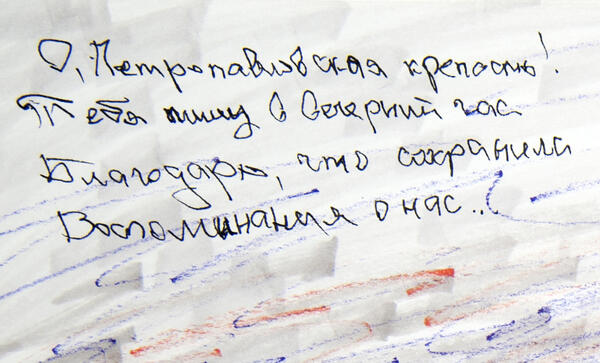 О, Петропавловская крепость!
Тебя пишу в вечерний час
Благодарю, что сохранила
Воспоминания о нас...